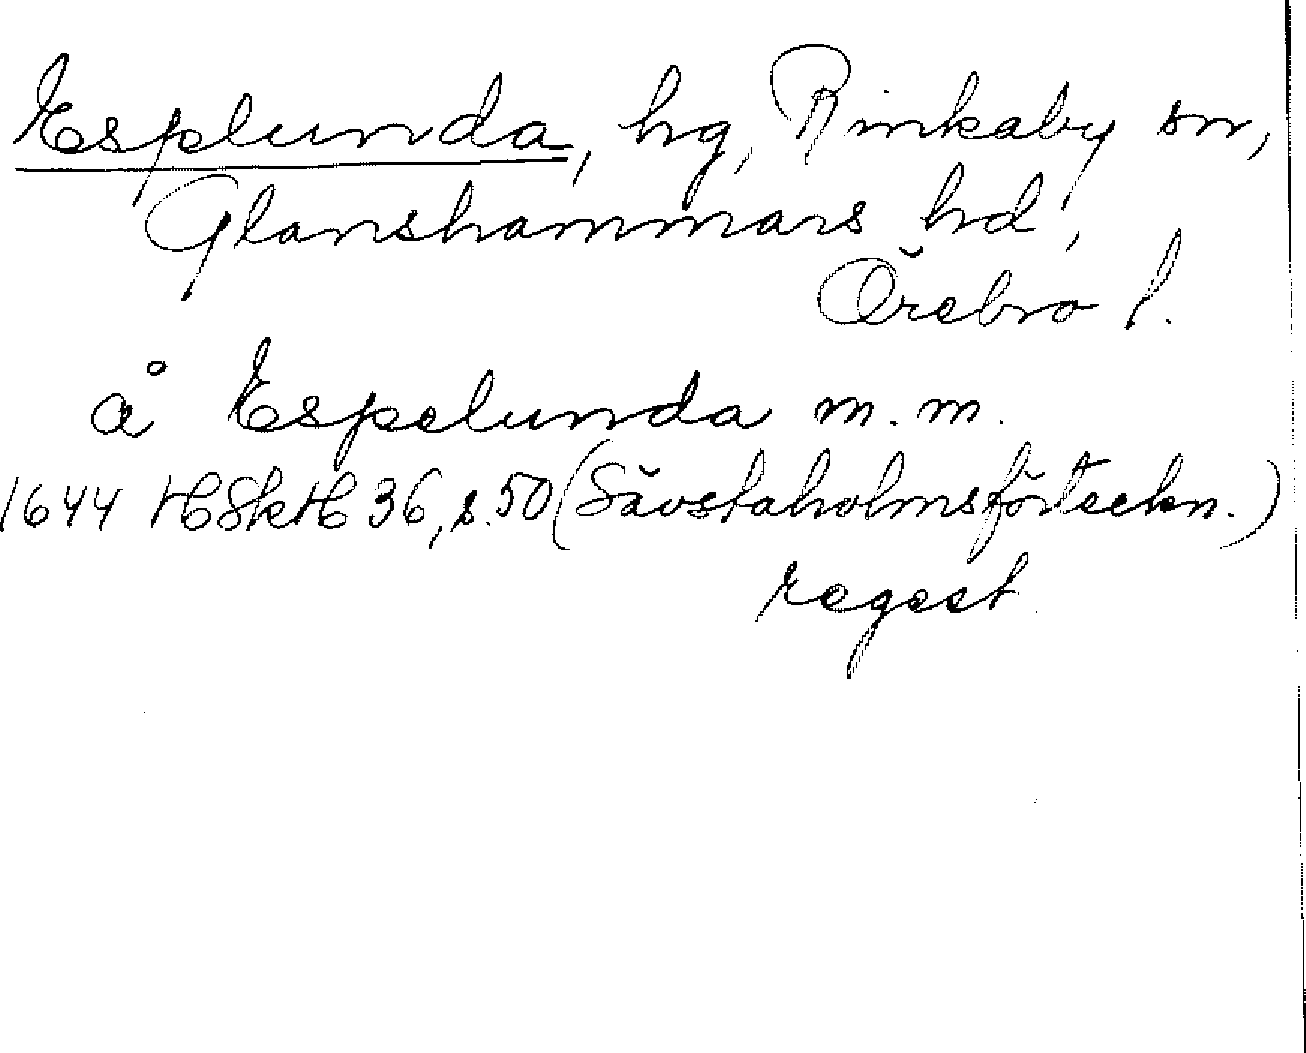 Esplunda, hg, Rinkaby sn,
Glanshammars hd,
Örebro l.
å Espelunda m.m.
1644 HSkH 36, s. 50 (Sävstaholmsförteckn.)
regest